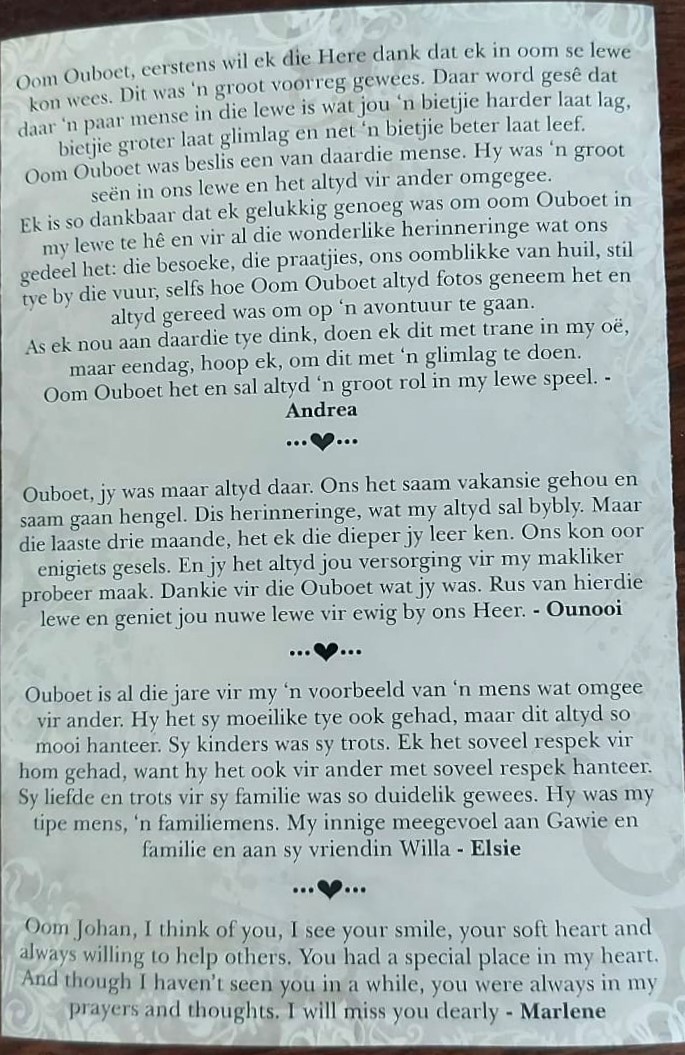 Oom Ouboet, eerstens wil ek die Here dank dat ek in oom se lewe
kon wees. Dit was ‘n groot voorreg gewees. Daar word gesê dat
daar ‘n paar mense in die lewe is wat jou ‘n bietjie harder laat lag,
bietjie groter laat glimlag en net ‘n bietjie beter laat leef.
Oom Ouboet was beslis een van daardie mense. Hy was ‘n groot
seën in ons lewe en het altyd vir ander omgegee.
Ek is so dankbaar dat ek gelukkig genoeg was om oom Ouboet in
my lewe te hê en vir al die wonderlike herinneringe wat ons
gedeel het: die besoeke, die praatjies, ons oomblikke van huil, stil
tye by die vuur, selfs hoe Oom Ouboet altyd fotos geneem het en
altyd gereed was om op ‘n avontuur te gaan.
As ek nou aan daardie tye dink, doen ek dit met trane in my oë,
maar eendag, hoop ek, om dit met ‘n glimlag te doen.
Oom Ouboet het en sal altyd ‘n groot rol in my lewe speel. -
Andrea
...♥...
Ouboet, jy was maar altyd daar. Ons het saam vakansie gehou en
saam gaan hengel. Dis herinneringe, wat my altyd sal bybly. Maar
die laaste drie maande, het ek die dieper jy leer ken. Ons kon oor
enigiets gesels. En jy het altyd jou versorging vir my makliker
probeer maak. Dankie vir die Ouboet wat jy was. Rus van hierdie
lewe en geniet jou nuwe lewe vir ewig by ons Heer. - Ounooi
...♥...
Ouboet is al die jare vir my ‘n voorbeeld van ‘n mens wat omgee
vir ander. Hy het sy moeilike tye ook gehad, maar dit altyd so
mooi hanteer. Sy kinders was sy trots. Ek het soveel respek vir
hom gehad, want hy het ook vir ander met soveel respek hanteer.
Sy liefde en trots vir sy familie was so duidelik gewees. Hy was my
tipe mens, ‘n familiemens. My innige meegevoel aan Gawie en
familie en aan sy vriendin Willa - Elsie
...♥...
Oom Johan, I think of you, I see your smile, your soft heart and
always willing to help others. You had a special place in my heart.
And though I haven’t seen you in a while, you were always in my
prayers and thoughts. I will miss you dearly - Marlene